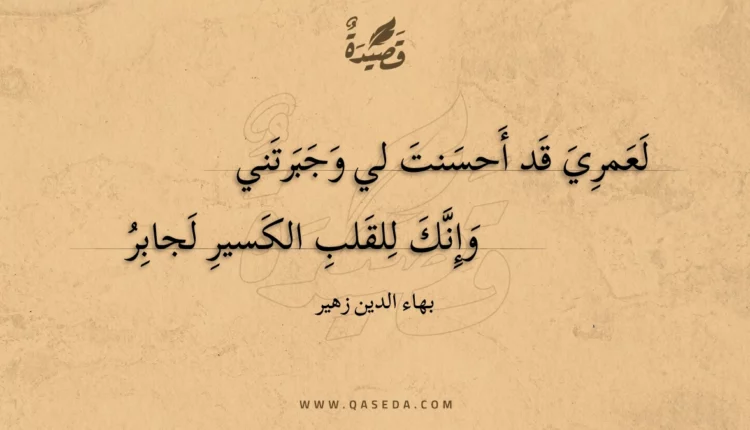 قَصِيدَةٌ
لَعَمرِيَ قَد أَحسَنتَ لي وَجَبَرتَني
وَإِنَّكَ لِلقَلبِ الكَسيرِ لَجابِرُ
بهاء الدين زهير
WWW.QASEDA.COM